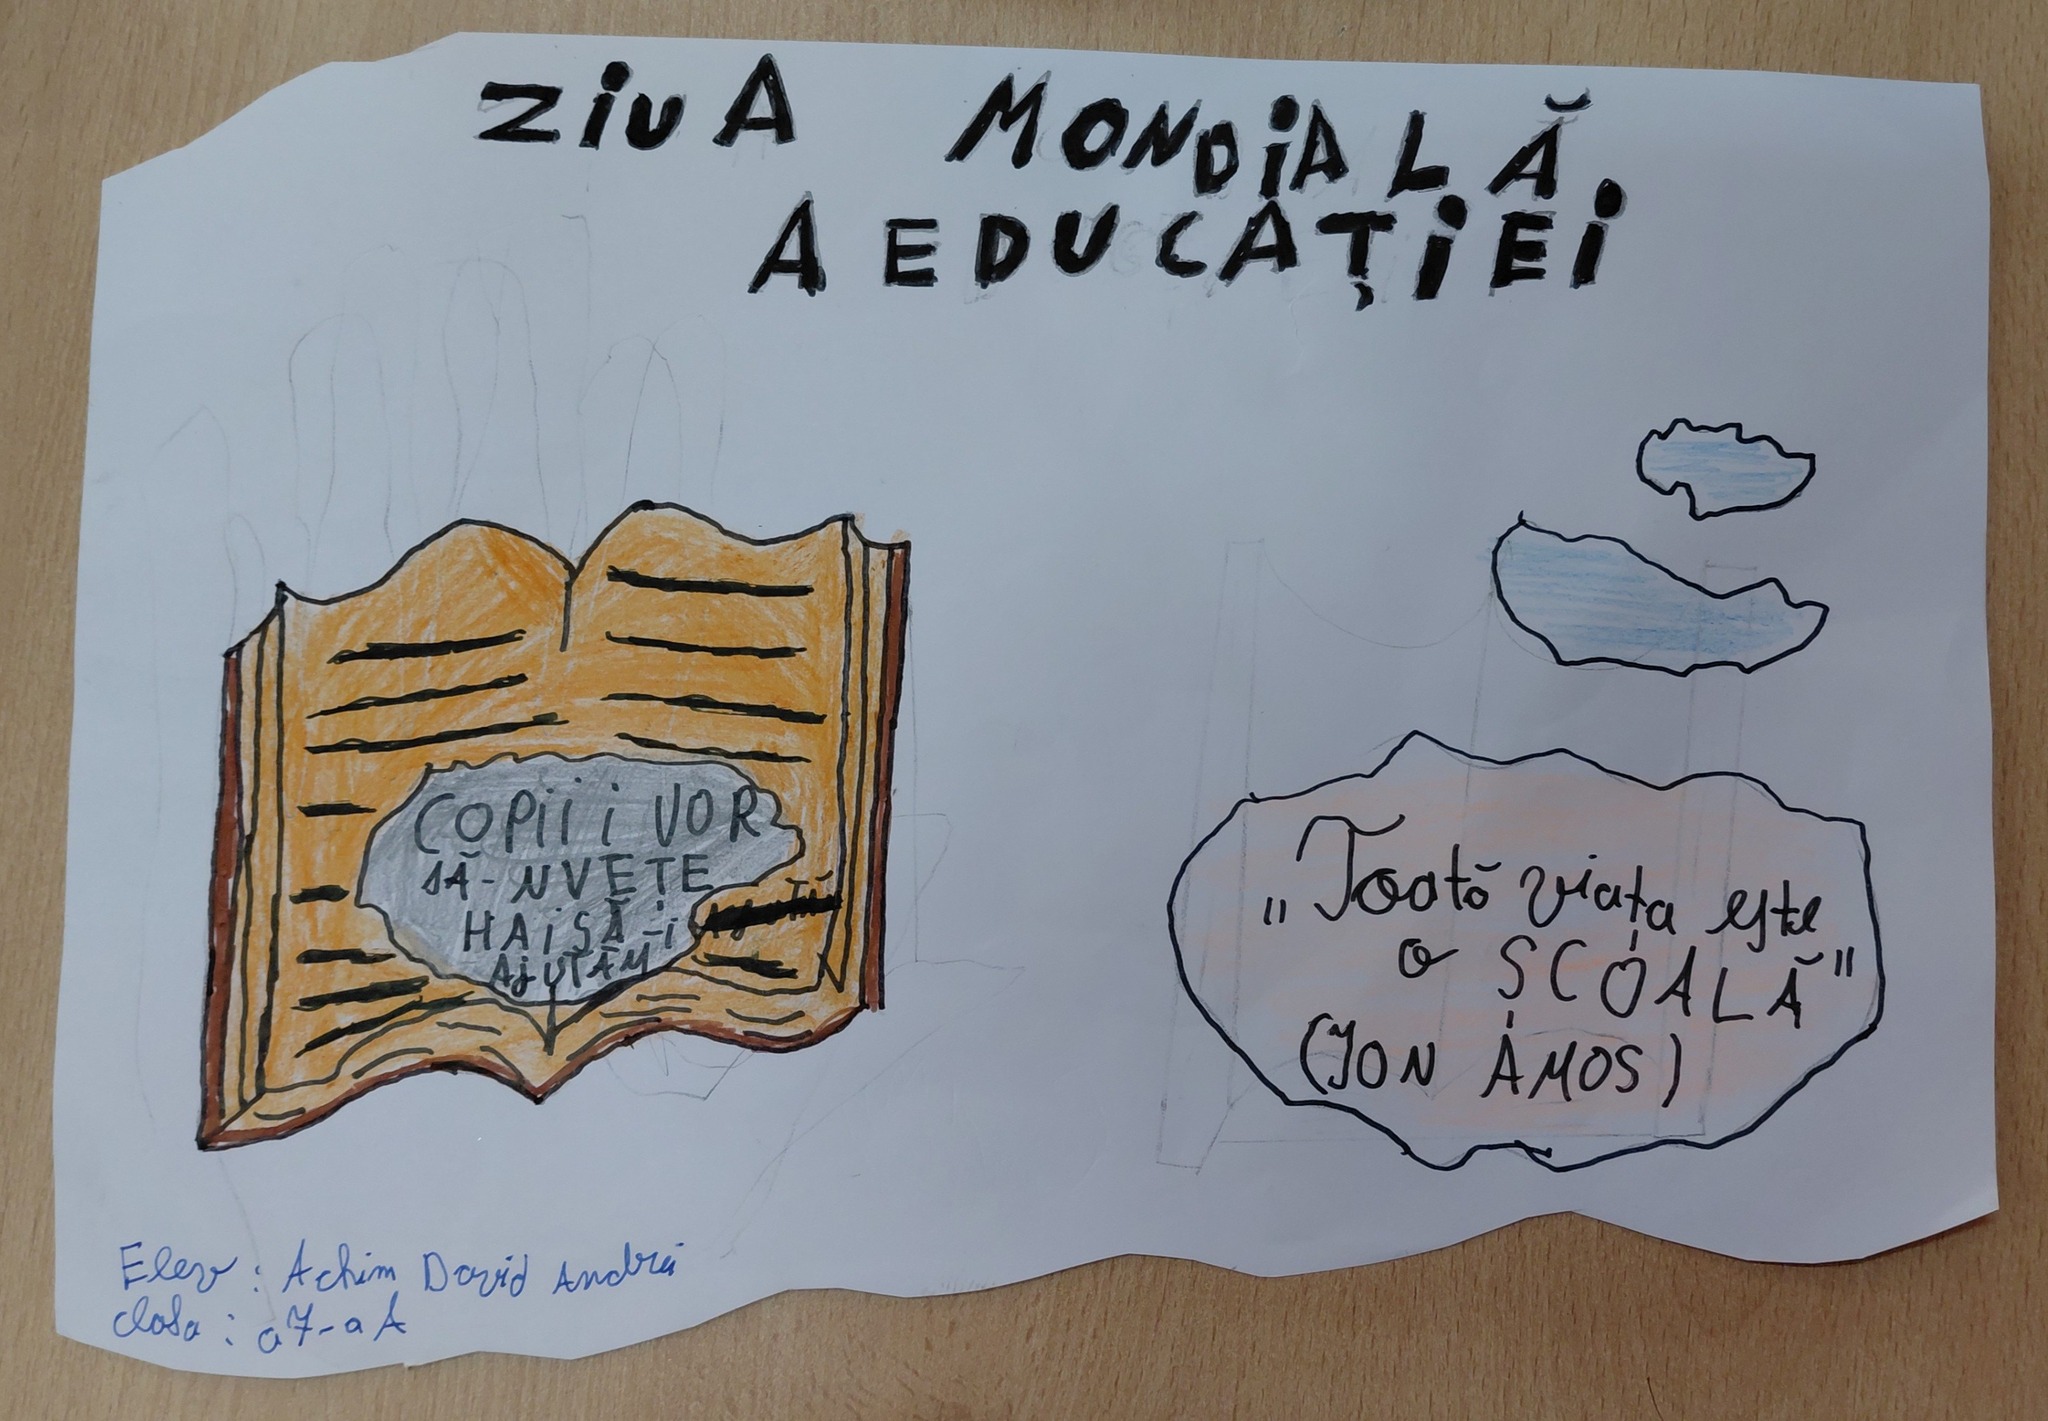 ZIUA MONDIALĂ
A EDUCAȚIEI
COPIII VOR
SĂ-NVEȚE
HAI SĂ-I
AJUTĂM
„Toată viața este
o ȘCOALĂ"
(ION AMOS)
Elev : Achim David Andrei
clasa : a 7-a A